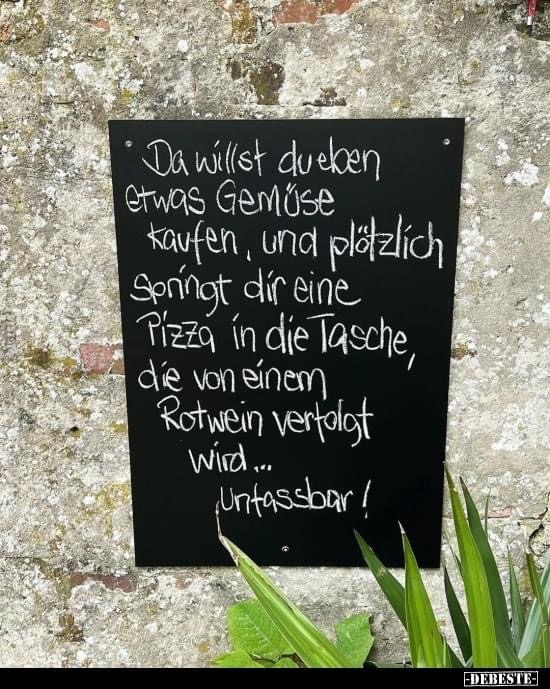 Da willst du eben
etwas Gemüse
kaufen, und plötzlich
springt dir eine
Pizza in die Tasche,
die von einem
Rotwein verfolgt
wird...
unfassbar!
-DEBESTE-